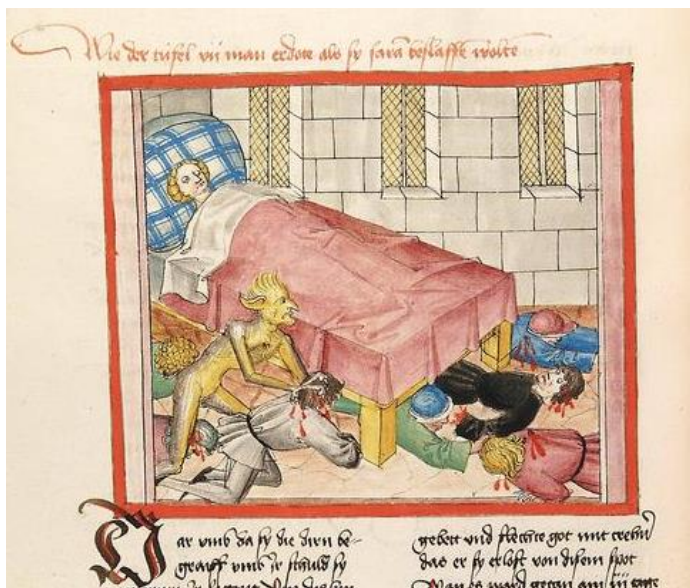 Wie der tüfel vij man erdote als sy sara beslaffe wolte
ar vmb da sy die dirn be-
graiff vmb jr schuld sy
gebett vnd flechte got mit trehn
das er sy erlost von disem spot
Wan es ward getan am iij tage